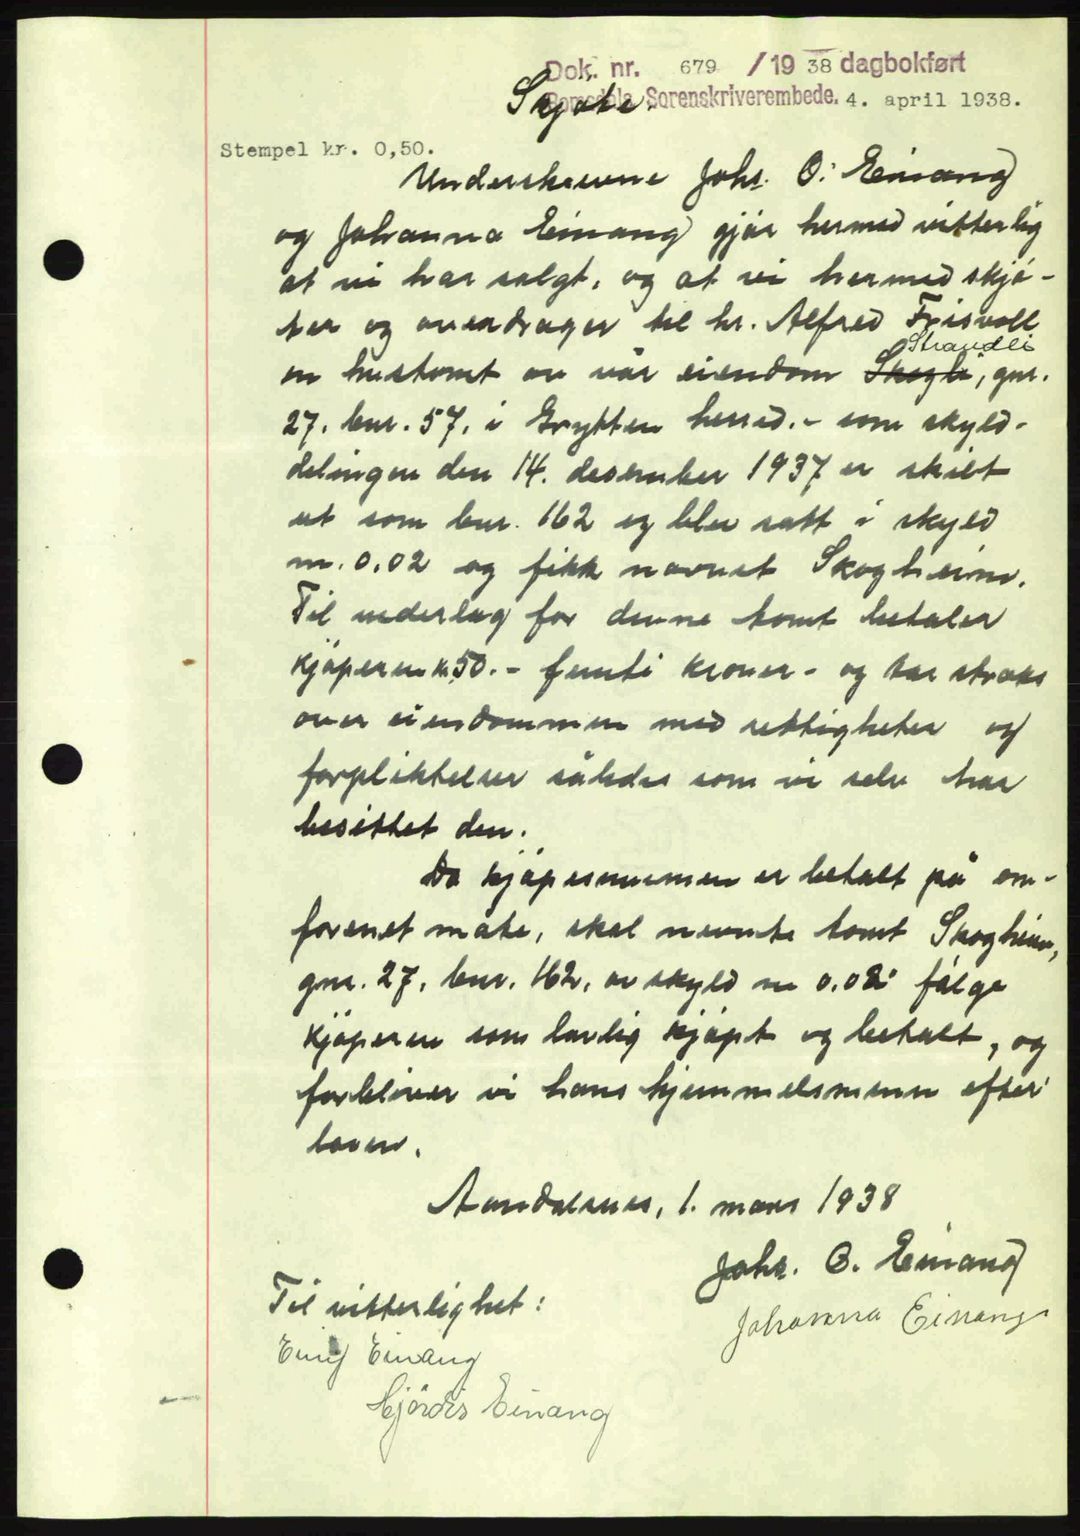 Dok. nr. 679 / 19 38 dagbokført
Romsdala Sorenskriverembede. 4. april 1938.
Skjøte.
Stempel kr. 0,50.
Underskrevne Johs. O. Einang
og Johanna Einang gjör hermed vitterlig
at vi har solgt, og at vi hermed skjö-
ter og overdrager til hr. Alfred Frisvoll
Strandli
en hustomt av vår eiendom Skogli, gnr.
27. bnr. 57, i Grytten herred. - som skyld-
delingen den 14. desember 1937 er skilt
ut som bnr. 162 og blev satt i skyld
m. 0,02 og fikk navnet Skogheim.
Til vederlag for denne tomt betaler
kjöperen kr. 50.- femti kroner - og tar straks
over eiendommen med rettigheter og
forpliktelser således som vi selv har
besittet den.
Da kjöpesummen er betalt på om-
forenet måte, skal nevnte tomt Skogheim,
gnr. 27, bnr. 162, av skyld m 0.02 fölge
kjöperen som lovlig kjöpt og betalt, og
forbliver vi hans hjemmelsmenn efter
loven.
Aandalsnes, 1. mars 1938
Johs. O. Einang
Johanna Einang
Til vitterlighet:
Einang
Hjördis Einang